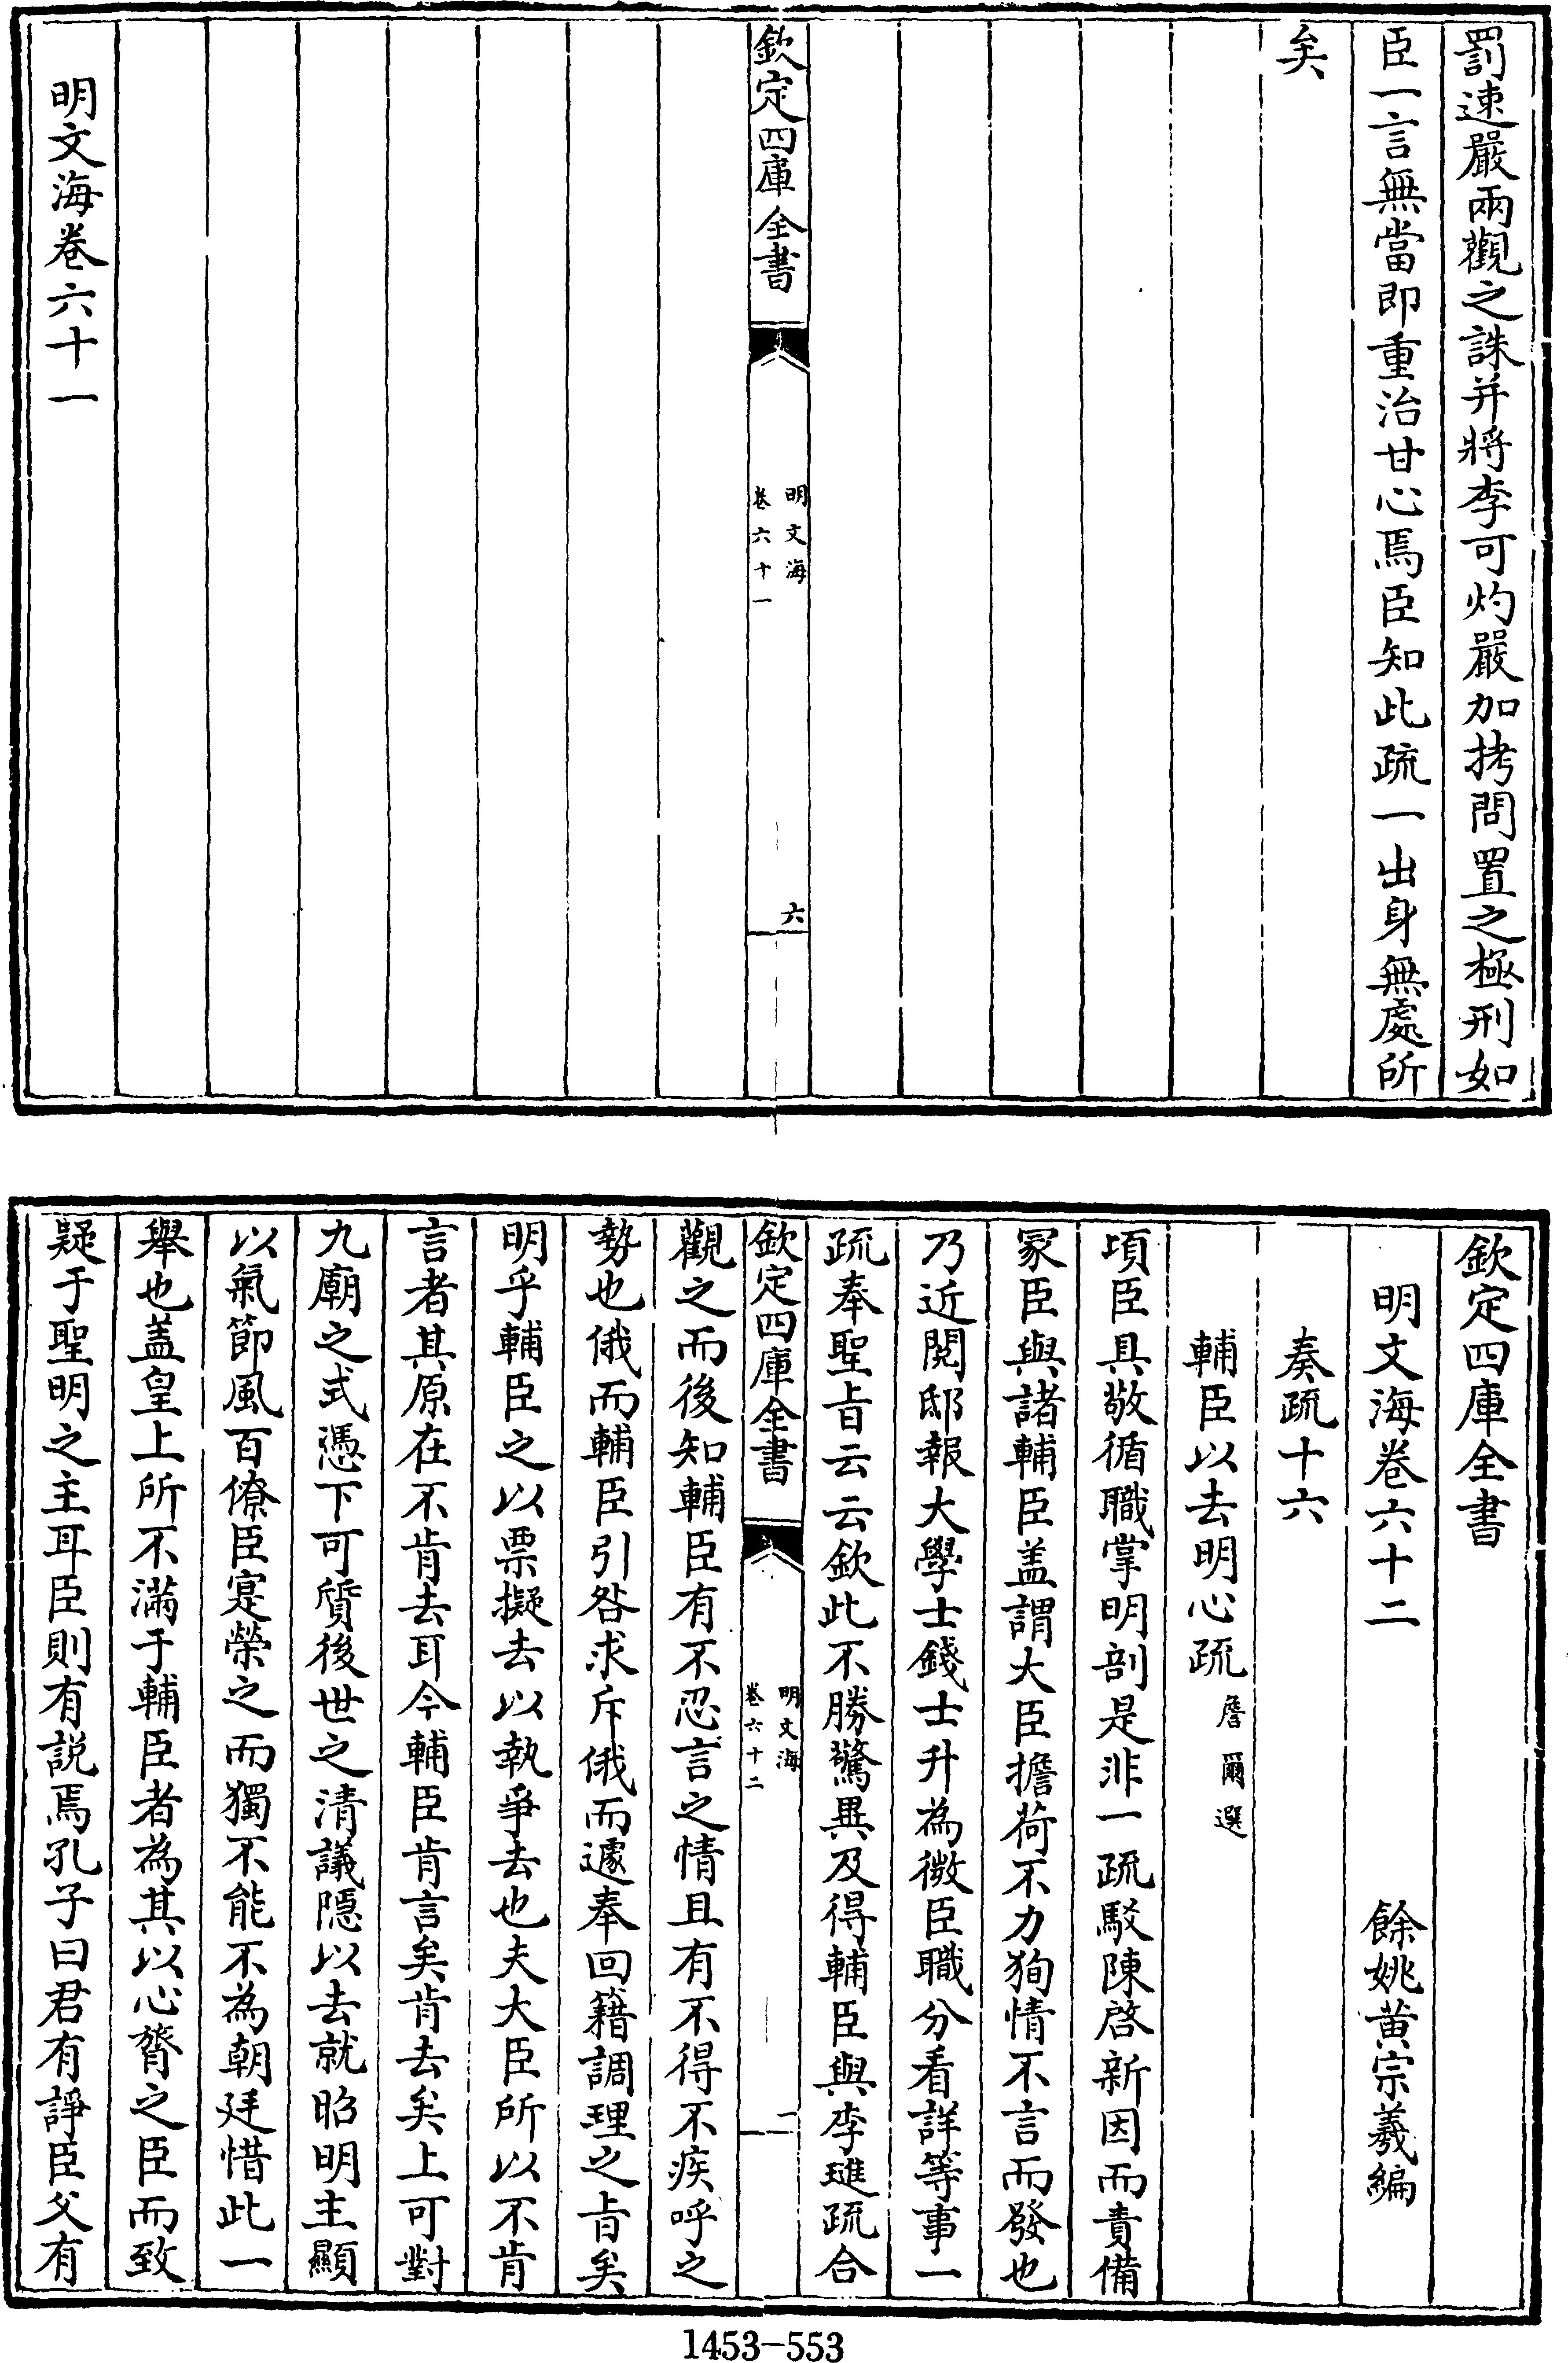 罰速嚴兩觀之誅并將李可灼嚴加拷問置之極刑如
臣一言無當即重治甘心焉臣知此疏一出身無處所
矣
欽定四庫全書
明文海
卷六十一
六
明文海卷六十一
欽定四庫全書
明文海卷六十二
餘姚黄宗羲編
奏疏十六
輔臣以去明心疏 詹爾選
頃臣具敬循職掌明剖是非一疏駁陳啓新因而責備
冢臣與諸輔臣盖謂大臣擔荷不力狥情不言而發也
乃近閱邸報大學士錢士升為微臣職分看詳等事一
疏奉聖旨云云欽此不勝驚異及得輔臣與李璡疏合
欽定四庫全書
明文海
卷六十二
觀之而後知輔臣有不忍言之情且有不得不疾呼之
勢也俄而輔臣引咎求斥俄而遽奉回籍調理之旨矣
明乎輔臣之以票擬去以執爭去也夫大臣所以不肯
言者其原在不肯去耳今輔臣肯言矣肯去矣上可對
九廟之式憑下可質後世之清議隱以去就昭明主顯
以氣節風百僚臣寔榮之而獨不能不為朝廷惜此一
舉也盖皇上所不滿于輔臣者為其以心膂之臣而致
疑于聖明之主耳臣則有説焉孔子曰君有諍臣父有
1453-553